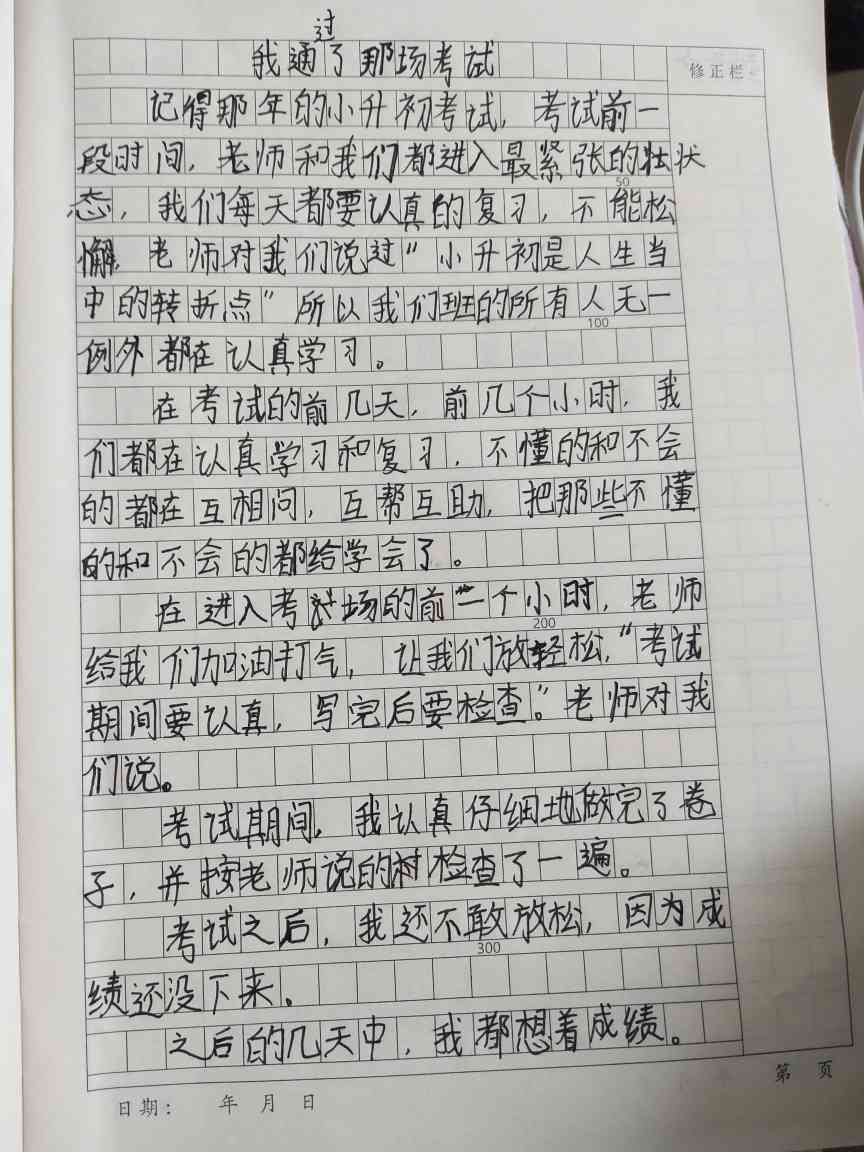 过
我通了那场考试
修正栏
记得那年的小升初考试，考试前一
段时间，老师和我们都进入最紧张的壮状
态，我们每天都要认真的复习，不能松
50
懈，老师对我们说过“小升初是人生当
中的转折点”所以我们班的所有人无一
100
例外都在认真学习。
在考试的前几天，前几个小时，我
们都在认真学习和复习，不懂的和不会
的都在互相问，互帮互助，把那些不懂
的和不会的都给学会了。
在进入考场的前一个小时，老师
200
给我们加油打气，让我们放轻松，“考试
期间要认真，写完后要检查。”老师对我
们说。
考试期间，我认真仔细地做完了卷
子，并按老师说的检查了一遍。
考试之后，我还不敢放松，因为成
300
绩还没下来。
之后的几天中，我都想着成绩。
第 页
日期： 年 月 日